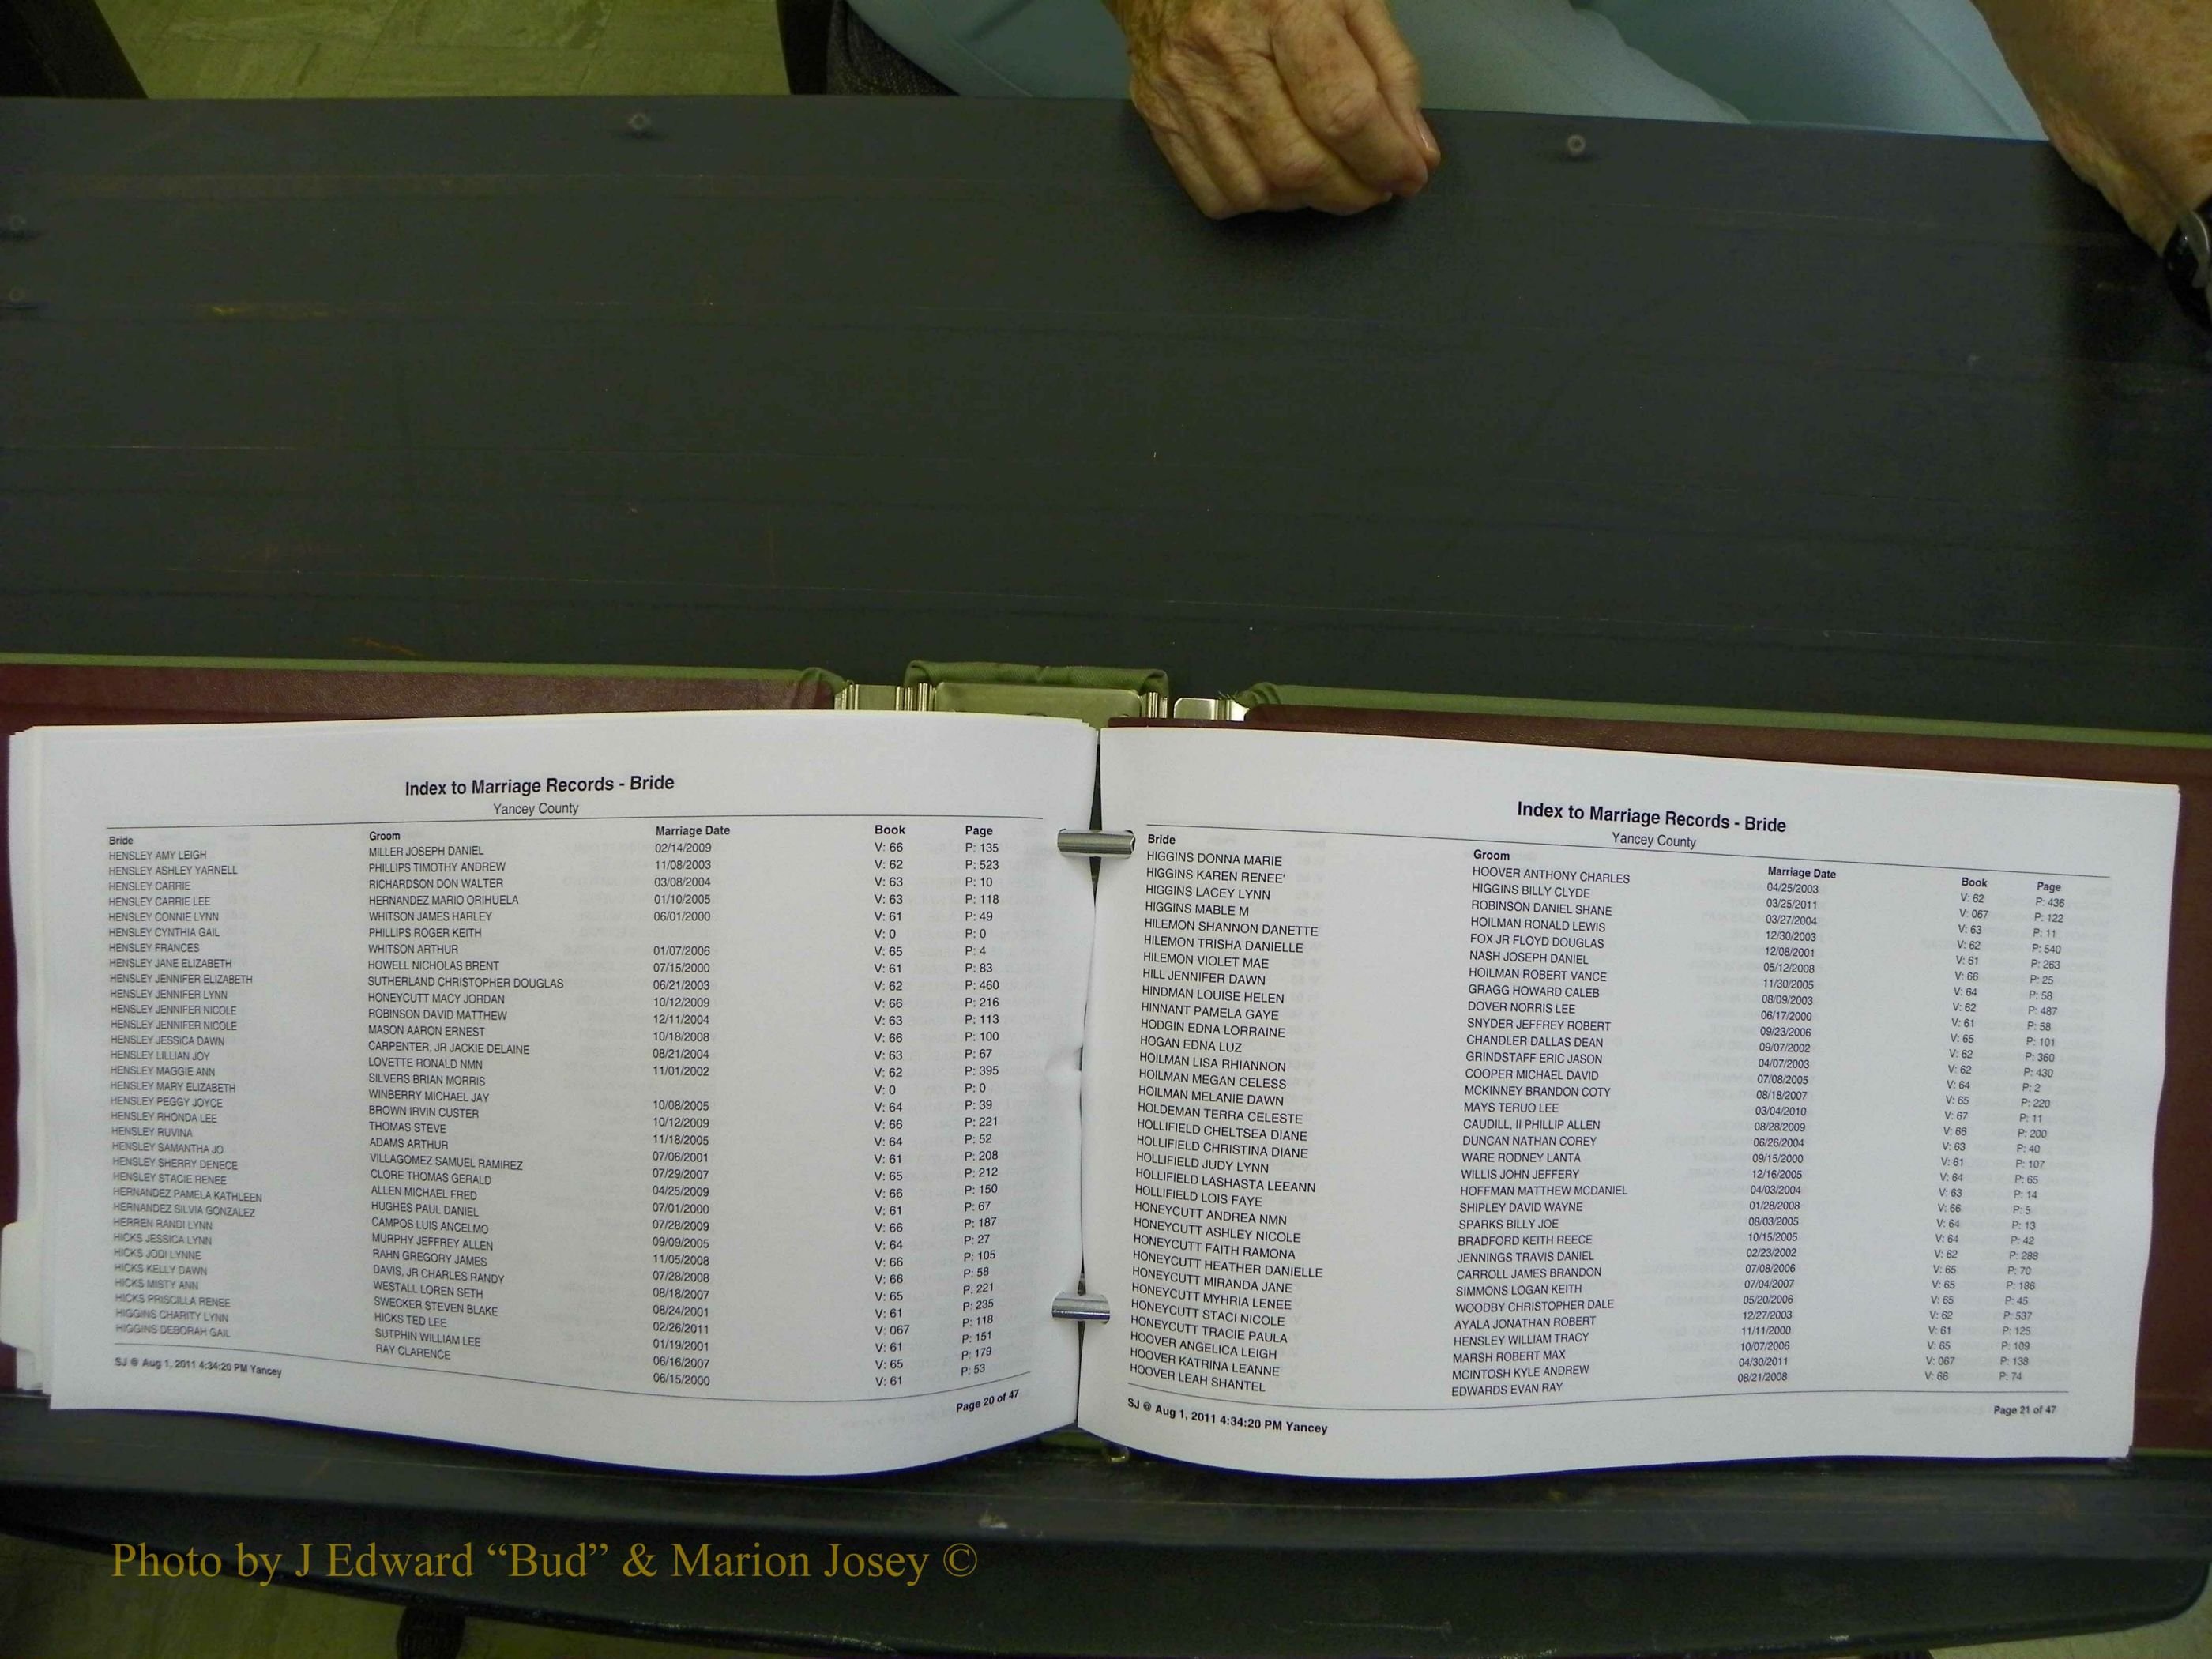 Index to Marriage Records - Bride
Yancey County
Bride Groom Marriage Date Book Page
HENSLEY AMY LEIGH MILLER JOSEPH DANIEL 02/14/2009 V: 66 P: 135
HENSLEY ASHLEY YARNELL PHILLIPS TIMOTHY ANDREW 11/08/2003 V: 62 P: 523
HENSLEY CARRIE RICHARDSON DON WALTER 03/08/2004 V: 63 P: 10
HENSLEY CARRIE LEE HERNANDEZ MARIO ORIHUELA 01/10/2005 V: 63 P: 118
HENSLEY CONNIE LYNN WHITSON JAMES HARLEY 06/01/2000 V: 61 P: 49
HENSLEY CYNTHIA GAIL PHILLIPS ROGER KEITH V: 0 P: 0
HENSLEY FRANCES WHITSON ARTHUR 01/07/2006 V: 65 P: 4
HENSLEY JANE ELIZABETH HOWELL NICHOLAS BRENT 07/15/2000 V: 61 P: 83
HENSLEY JENNIFER ELIZABETH SUTHERLAND CHRISTOPHER DOUGLAS 06/21/2003 V: 62 P: 460
HENSLEY JENNIFER LYNN HONEYCUTT MACY JORDAN 10/12/2009 V: 66 P: 216
HENSLEY JENNIFER NICOLE ROBINSON DAVID MATTHEW 12/11/2004 V: 63 P: 113
HENSLEY JENNIFER NICOLE MASON AARON ERNEST 10/18/2008 V: 66 P: 100
HENSLEY JESSICA DAWN CARPENTER, JR JACKIE DELAINE 08/21/2004 V: 63 P: 67
HENSLEY LILLIAN JOY LOVETTE RONALD NMN 11/01/2002 V: 62 P: 395
HENSLEY MAGGIE ANN SILVERS BRIAN MORRIS V: 0 P: 0
HENSLEY MARY ELIZABETH WINBERRY MICHAEL JAY 10/08/2005 V: 64 P: 39
HENSLEY PEGGY JOYCE BROWN IRVIN CUSTER 10/12/2009 V: 66 P: 221
HENSLEY RHONDA LEE THOMAS STEVE 11/18/2005 V: 64 P: 52
HENSLEY RUVINA ADAMS ARTHUR 07/06/2001 V: 61 P: 208
HENSLEY SAMANTHA JO VILLAGOMEZ SAMUEL RAMIREZ 07/29/2007 V: 65 P: 212
HENSLEY SHERRY DENECE CLORE THOMAS GERALD 04/25/2009 V: 66 P: 150
HENSLEY STACIE RENEE ALLEN MICHAEL FRED 07/01/2000 V: 61 P: 67
HERNANDEZ PAMELA KATHLEEN HUGHES PAUL DANIEL 07/28/2009 V: 66 P: 187
HERNANDEZ SILVIA GONZALEZ CAMPOS LUIS ANCELMO 09/09/2005 V: 64 P: 27
HERREN RANDI LYNN MURPHY JEFFREY ALLEN 11/05/2008 V: 66 P: 105
HICKS JESSICA LYNN RAHN GREGORY JAMES 07/28/2008 V: 66 P: 58
HICKS JODI LYNNE DAVIS, JR CHARLES RANDY 08/18/2007 V: 65 P: 221
HICKS KELLY DAWN WESTALL LOREN SETH 08/24/2001 V: 61 P: 235
HICKS MISTY ANN SWECKER STEVEN BLAKE 02/26/2011 V: 067 P: 118
HICKS PRISCILLA RENEE HICKS TED LEE 01/19/2001 V: 61 P: 151
HIGGINS CHARITY LYNN SUTPHIN WILLIAM LEE 06/16/2007 V: 65 P: 179
HIGGINS DEBORAH GAIL RAY CLARENCE 06/15/2000 V: 61 P: 53
SJ @ Aug 1, 2011 4:34:20 PM Yancey Page 20 of 47
Index to Marriage Records - Bride
Yancey County
Bride Groom Marriage Date Book Page
HIGGINS DONNA MARIE HOOVER ANTHONY CHARLES 04/25/2003 V: 62 P: 436
HIGGINS KAREN RENEE' HIGGINS BILLY CLYDE 03/25/2011 V: 067 P: 122
HIGGINS LACEY LYNN ROBINSON DANIEL SHANE 03/27/2004 V: 63 P: 11
HIGGINS MABLE M HOILMAN RONALD LEWIS 12/30/2003 V: 62 P: 540
HILEMON SHANNON DANETTE FOX JR FLOYD DOUGLAS 12/08/2001 V: 61 P: 263
HILEMON TRISHA DANIELLE NASH JOSEPH DANIEL 05/12/2008 V: 66 P: 25
HILEMON VIOLET MAE HOILMAN ROBERT VANCE 11/30/2005 V: 64 P: 58
HILL JENNIFER DAWN GRAGG HOWARD CALEB 08/09/2003 V: 62 P: 487
HINDMAN LOUISE HELEN DOVER NORRIS LEE 06/17/2000 V: 61 P: 58
HINNANT PAMELA GAYE SNYDER JEFFREY ROBERT 09/23/2006 V: 65 P: 101
HODGIN EDNA LORRAINE CHANDLER DALLAS DEAN 09/07/2002 V: 62 P: 360
HOGAN EDNA LUZ GRINDSTAFF ERIC JASON 04/07/2003 V: 62 P: 430
HOILMAN LISA RHIANNON COOPER MICHAEL DAVID 07/08/2005 V: 64 P: 2
HOILMAN MEGAN CELESS MCKINNEY BRANDON COTY 08/18/2007 V: 65 P: 220
HOILMAN MELANIE DAWN MAYS TERUO LEE 03/04/2010 V: 67 P: 11
HOLDEMAN TERRA CELESTE CAUDILL, II PHILLIP ALLEN 08/28/2009 V: 66 P: 200
HOLLIFIELD CHELTSEA DIANE DUNCAN NATHAN COREY 06/26/2004 V: 63 P: 40
HOLLIFIELD CHRISTINA DIANE WARE RODNEY LANTA 09/15/2000 V: 61 P: 107
HOLLIFIELD JUDY LYNN WILLIS JOHN JEFFERY 12/16/2005 V: 64 P: 65
HOLLIFIELD LASHASTA LEEANN HOFFMAN MATTHEW MCDANIEL 04/03/2004 V: 63 P: 14
HOLLIFIELD LOIS FAYE SHIPLEY DAVID WAYNE 01/28/2008 V: 66 P: 5
HONEYCUTT ANDREA NMN SPARKS BILLY JOE 08/03/2005 V: 64 P: 13
HONEYCUTT ASHLEY NICOLE BRADFORD KEITH REECE 10/15/2005 V: 64 P: 42
HONEYCUTT FAITH RAMONA JENNINGS TRAVIS DANIEL 02/23/2002 V: 62 P: 288
HONEYCUTT HEATHER DANIELLE CARROLL JAMES BRANDON 07/08/2006 V: 65 P: 70
HONEYCUTT MIRANDA JANE SIMMONS LOGAN KEITH 07/04/2007 V: 65 P: 186
HONEYCUTT MYHRIA LENEE WOODBY CHRISTOPHER DALE 05/20/2006 V: 65 P: 45
HONEYCUTT STACI NICOLE AYALA JONATHAN ROBERT 12/27/2003 V: 62 P: 537
HONEYCUTT TRACIE PAULA HENSLEY WILLIAM TRACY 11/11/2000 V: 61 P: 125
HOOVER ANGELICA LEIGH MARSH ROBERT MAX 10/07/2006 V: 65 P: 109
HOOVER KATRINA LEANNE MCINTOSH KYLE ANDREW 04/30/2011 V: 067 P: 138
HOOVER LEAH SHANTEL EDWARDS EVAN RAY 08/21/2008 V: 66 P: 74
SJ @ Aug 1, 2011 4:34:20 PM Yancey Page 21 of 47
Photo by J Edward “Bud” & Marion Josey ©